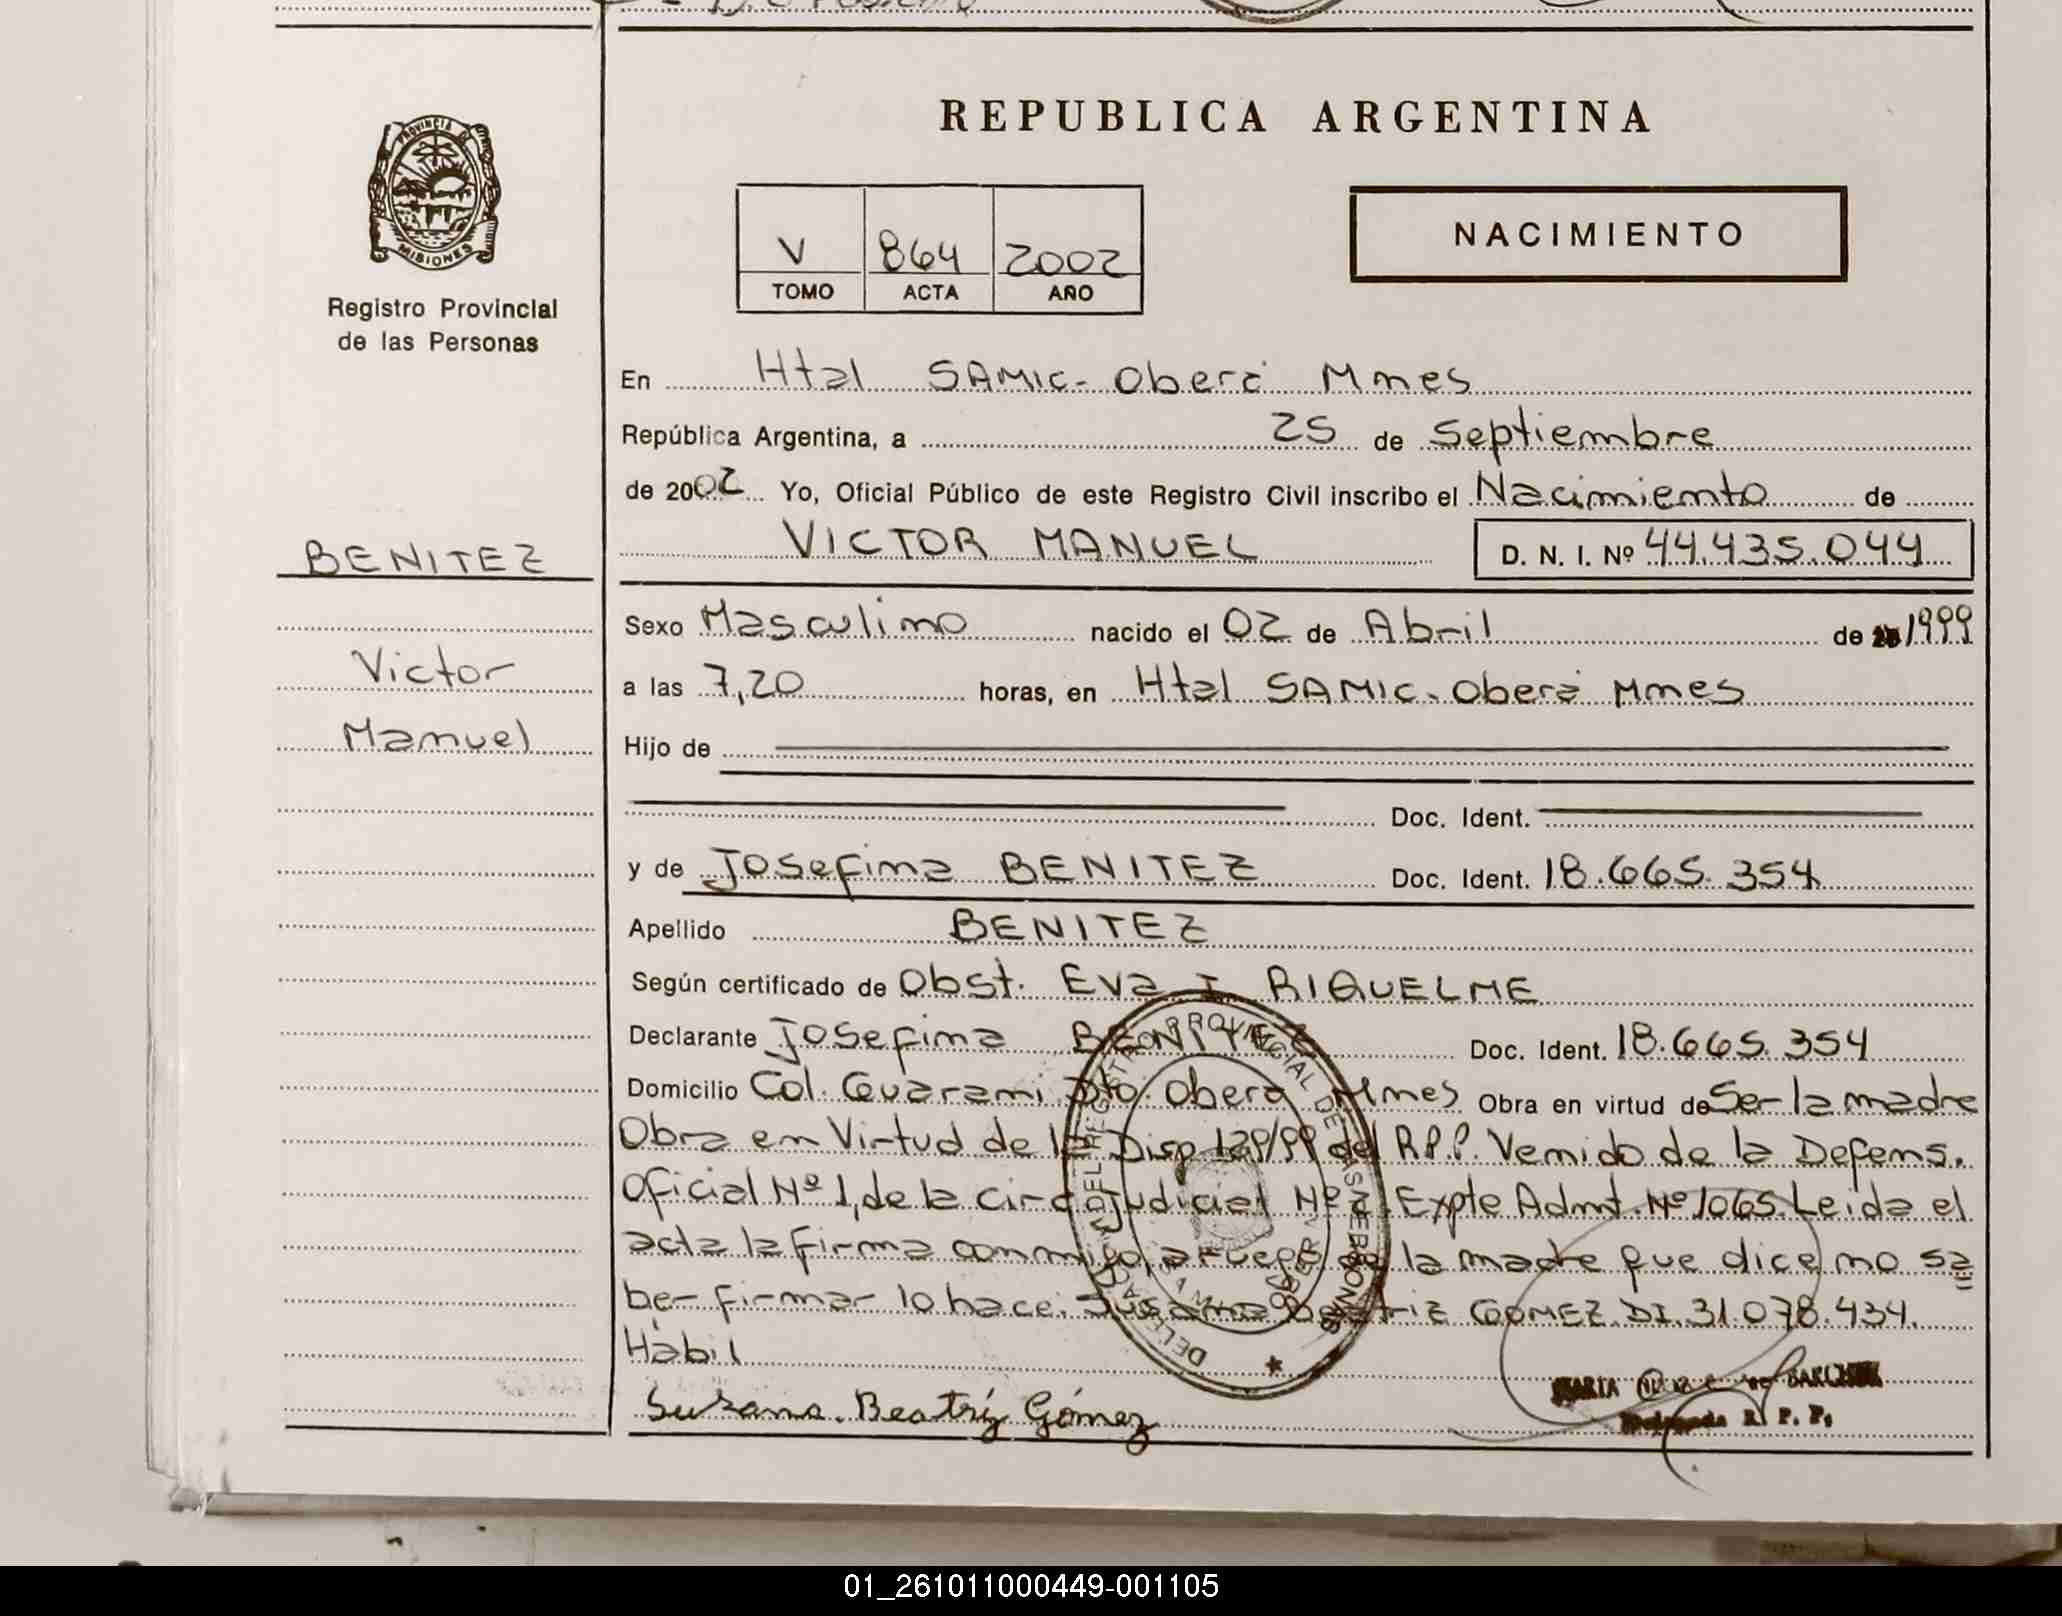 REPUBLICA ARGENTINA
PROVINCIA DE
MISIONES
Registro Provincial
de las Personas
V 864 2002
TOMO ACTA AÑO
NACIMIENTO
En Htal SAMIC- Oberá Mnes
República Argentina, a 25 de Septiembre
de 2002 Yo, Oficial Público de este Registro Civil inscribo el Nacimiento de
VICTOR MANUEL D. N. I. Nº 44.435.044
BENITEZ
Victor
Manuel
Sexo Masculino nacido el 02 de Abril de 1999
a las 7,20 horas, en Htal SAMIC. Oberá Mnes
Hijo de
Doc. Ident.
y de Josefina BENITEZ Doc. Ident. 18.665.354
Apellido BENITEZ
Según certificado de Obst. Eva I RIQUELME
Declarante Josefina BENITEZ Doc. Ident. 18.665.354
Domicilio Col. Guarani Dto. Oberá Mnes Obra en virtud de Ser la madre
Obra en Virtud de la Disp 129/99 del R.P.P. Venido de la Defens.
Oficial Nº 1, de la Circ Judicial Nº Expte Admt. Nº 1065. Leida el
acta la firma conmigo, a ruego de la madre que dice no sa
ber firmar lo hace: Susana Beatriz GOMEZ. DI. 31.078.434.
Hábil
Susana. Beatríz Gómez
MARIA
R. P. P.
01_261011000449-001105